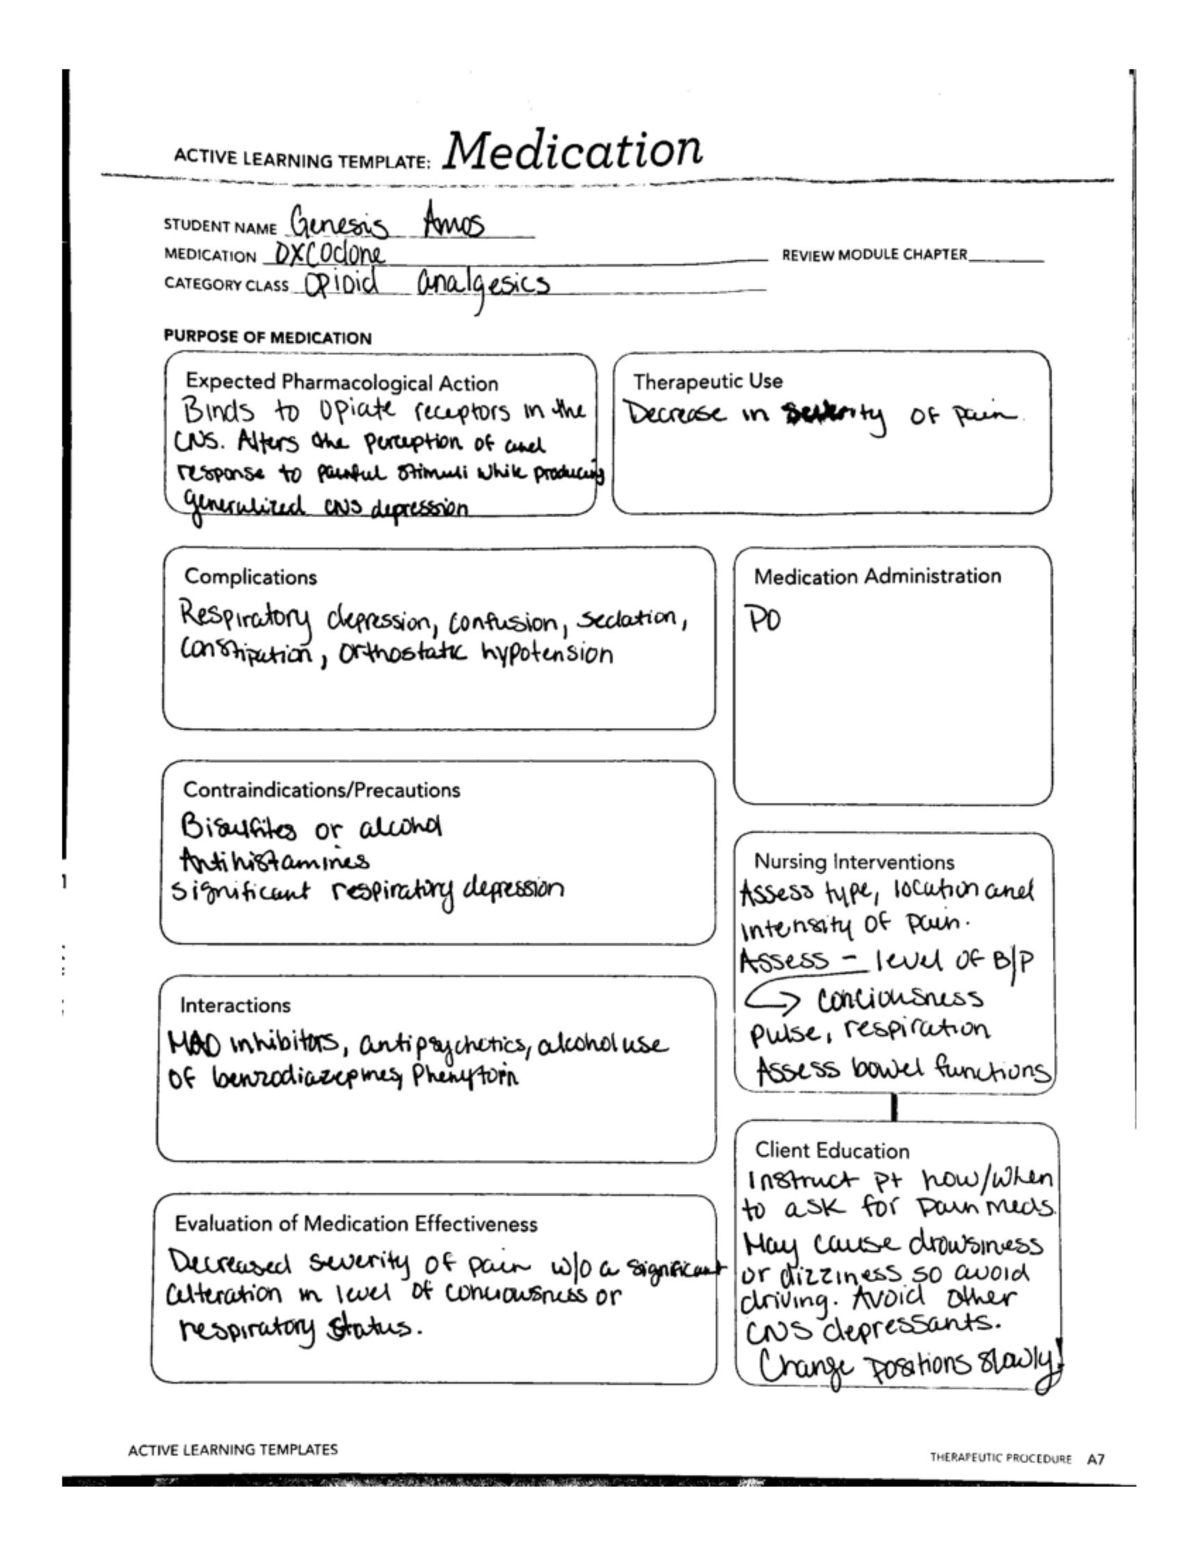 ACTIVE LEARNING TEMPLATE: Medication
STUDENT NAME Genesis Amos
MEDICATION OXCOdone
REVIEW MODULE CHAPTER
CATEGORY CLASS OPIOID analgesics
PURPOSE OF MEDICATION
Expected Pharmacological Action
Binds to opiate receptors in the
CNS. Alters the perception of and
response to painful stimuli while producing
generalized CNS depression
Therapeutic Use
Decrease in severity of pain.
Complications
Respiratory depression, confusion, sedation,
constipation, orthostatic hypotension
Medication Administration
PO
Contraindications/Precautions
Bisulfites or alcohol
Antihistamines
significant respiratory depression
Nursing Interventions
Assess type, location and
intensity of pain.
Assess - level of B/P
conciousness
pulse, respiration
Assess bowel functions
Interactions
MAO inhibitors, antipsychotics, alcohol use
of benzodiazepines, Phenytoin
Client Education
Instruct pt how/when
to ask for pain meds.
May cause drowsiness
or dizziness so avoid
driving. Avoid other
CNS depressants.
Change positions slowly!
Evaluation of Medication Effectiveness
Decreased severity of pain w/o a significant
alteration in level of conciousness or
respiratory status.
ACTIVE LEARNING TEMPLATES
THERAPEUTIC PROCEDURE A7